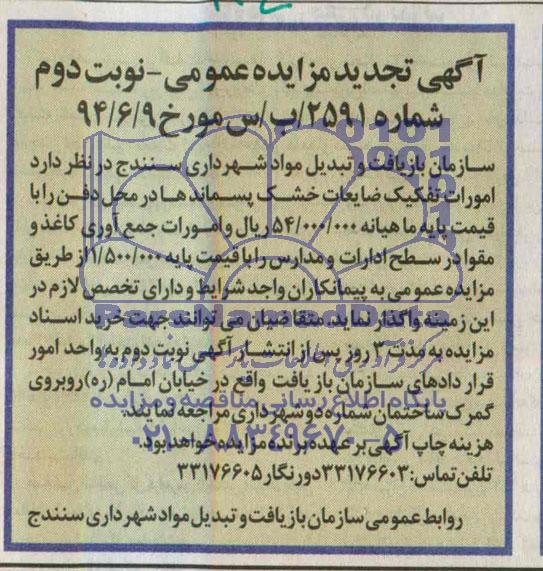 آگهی تجدید مزایده عمومی - نوبت دوم
شماره ۲۵۹۱/ب/س مورخ ۹۴/۶/۹
سازمان بازیافت و تبدیل مواد شهرداری سنندج در نظر دارد
امورات تفکیک ضایعات خشک پسماندها در محل دفن را با
قیمت پایه ماهیانه ۵۴/۰۰۰/۰۰۰ ریال و امورات جمع آوری کاغذ و
مقوا در سطح ادارات و مدارس را با قیمت پایه ۱/۵۰۰/۰۰۰ از طریق
مزایده عمومی به پیمانکاران واجد شرایط و دارای تخصص لازم در
این زمینه واگذار نماید. متقاضیان می توانند جهت خرید اسناد
مزایده به مدت ۳ روز پس از انتشار آگهی نوبت دوم به واحد امور
قراردادهای سازمان بازیافت واقع در خیابان امام (ره) روبروی
گمرک ساختمان شماره دو شهرداری مراجعه نمایند.
هزینه چاپ آگهی بر عهده برنده مزایده خواهد بود.
تلفن تماس: ۳۳۱۷۶۶۰۳ دورنگار ۳۳۱۷۶۶۰۵
روابط عمومی سازمان بازیافت و تبدیل مواد شهرداری سنندج
پایگاه اطلاع رسانی مناقصه و مزایده
۰۲۱-۸۸۳۴۹۶۷۰-۵